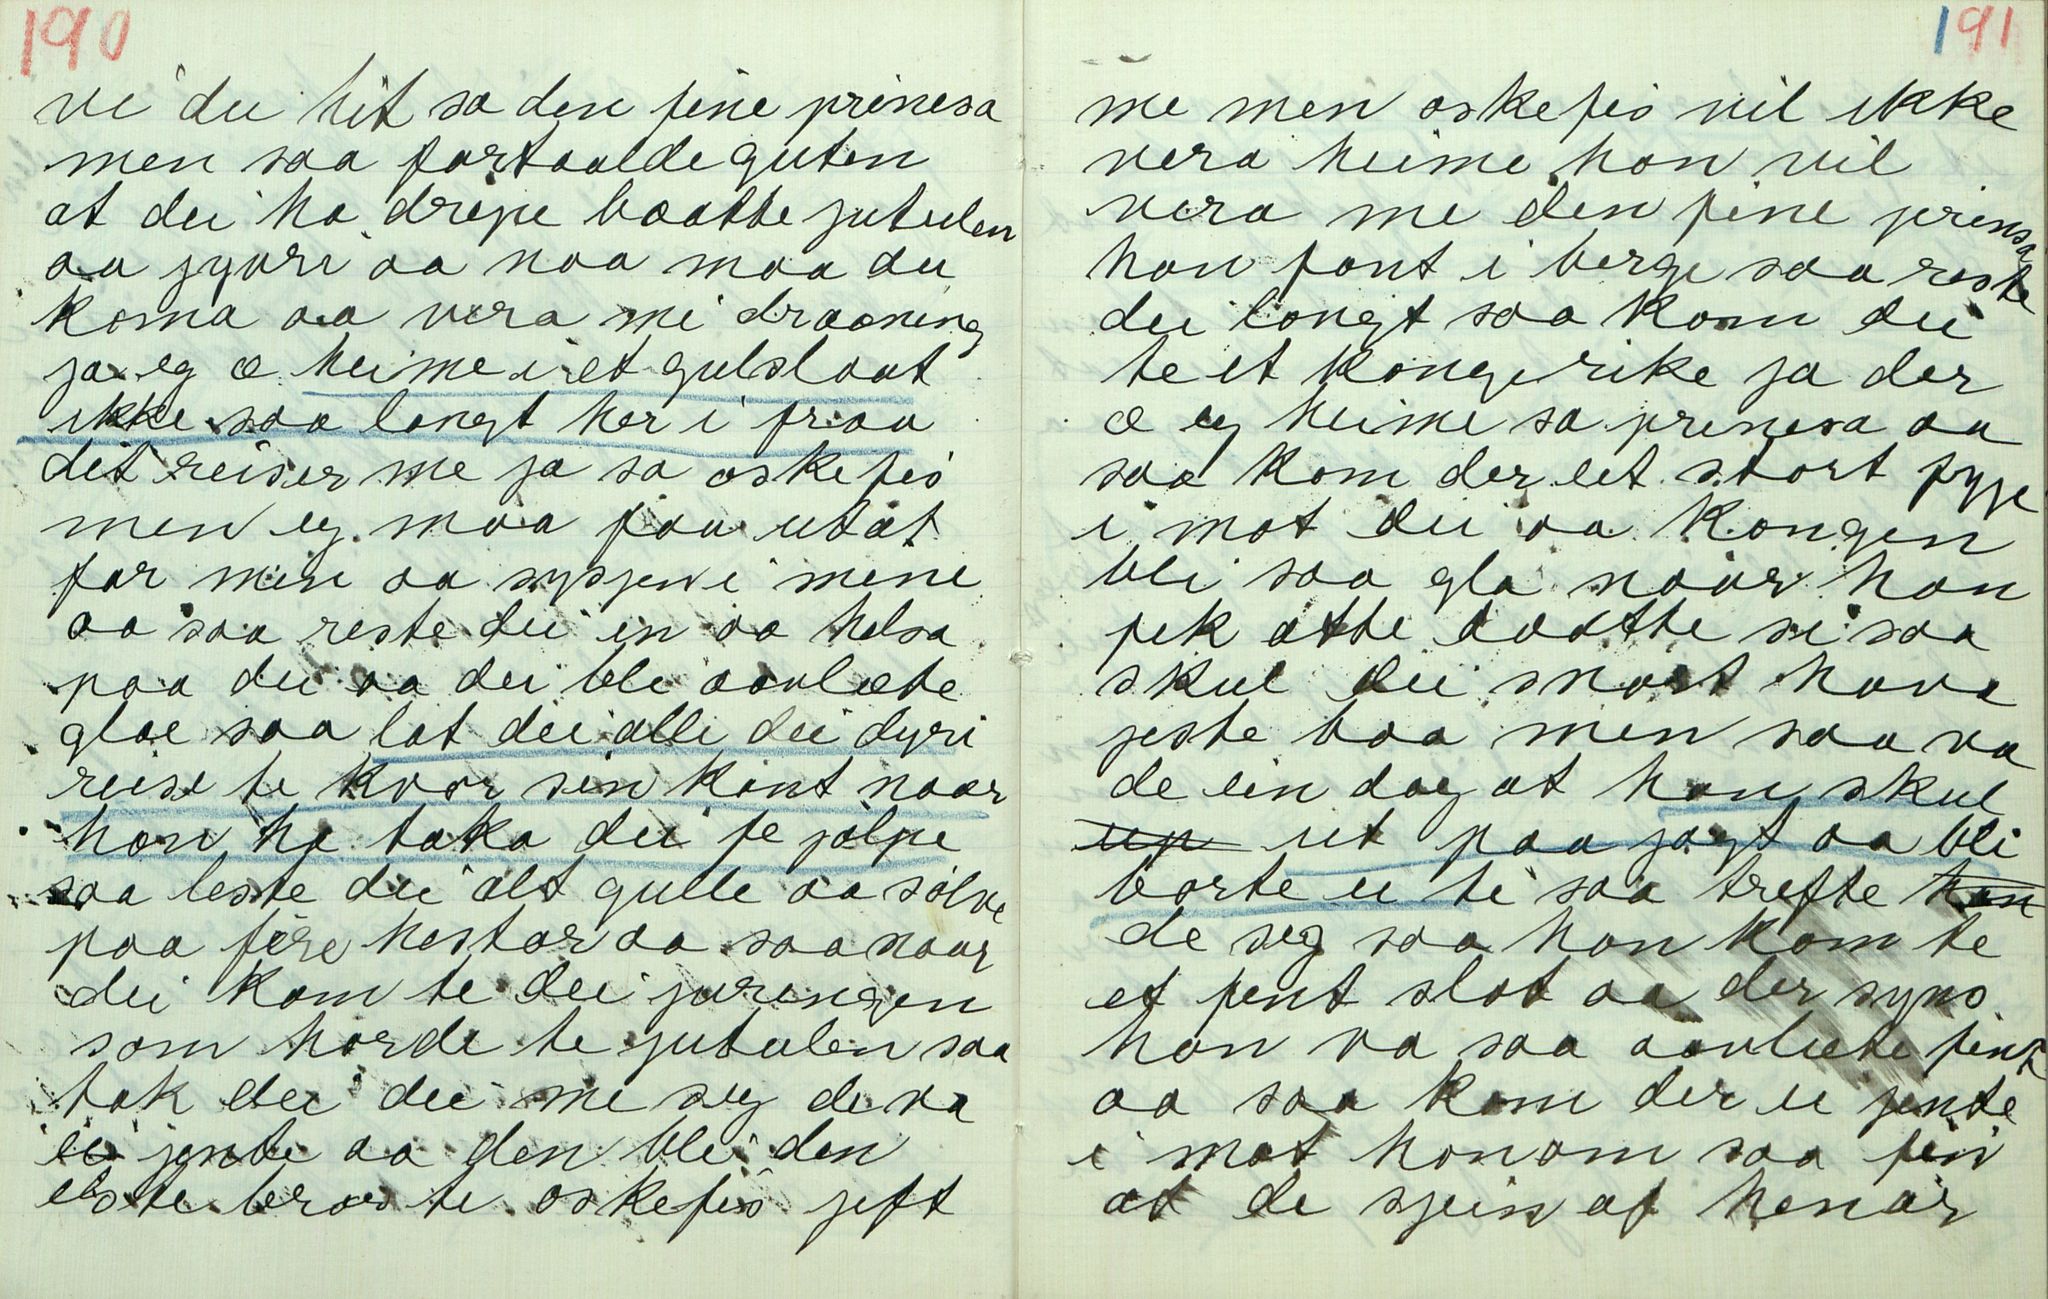 190
vi du hit sa den fine prinesa
men saa fortaalde guten
at dei ha drepe baathe jutulen
aa jyvri aa naa maa du
koma aa vera mi draaning
ja eg æ heime i et gulslaat
ikke saa langt her i fraa
dit reiser me ja sa oskefis
men eg maa faa utat
far min aa sysjeni mine
aa saa reste dei in aa helsa
paa dei aa dei blei aavlæte
glae saa lot dei alle dei dyri
reise te kvar sin kant naar
han ha taka dei te jolpe
saa leste dei alt gulle aa sølve
paa fire hestar aa saa naar
dei kom te dei jæringen
som horde te jutulen saa
tok dei dei me seg de va
ei jente aa den blei den
elste bror te oskefis jift
191
me men oskefis vil ikke
vera heime han vil
vera me den fine prinsesa
han fant i berge saa reste
dei langt saa kom dei
te et kongerike ja der
æ eg heime sa prinesa aa
saa kom der eit stort fyje
i mot dei aa kongen
bli saa gla naar han
fek atte daatte si saa
skul dei snart hava
jestebaa men saa va
de ein dag at han skul
up ut paa jagt aa bli
borte ei ti saa trefte han
de seg saa han kom te
et pent slot aa der syns
han va saa aavlæte fint
aa saa kom der ei jente
i mot honom saa fin
at de sjein af henar